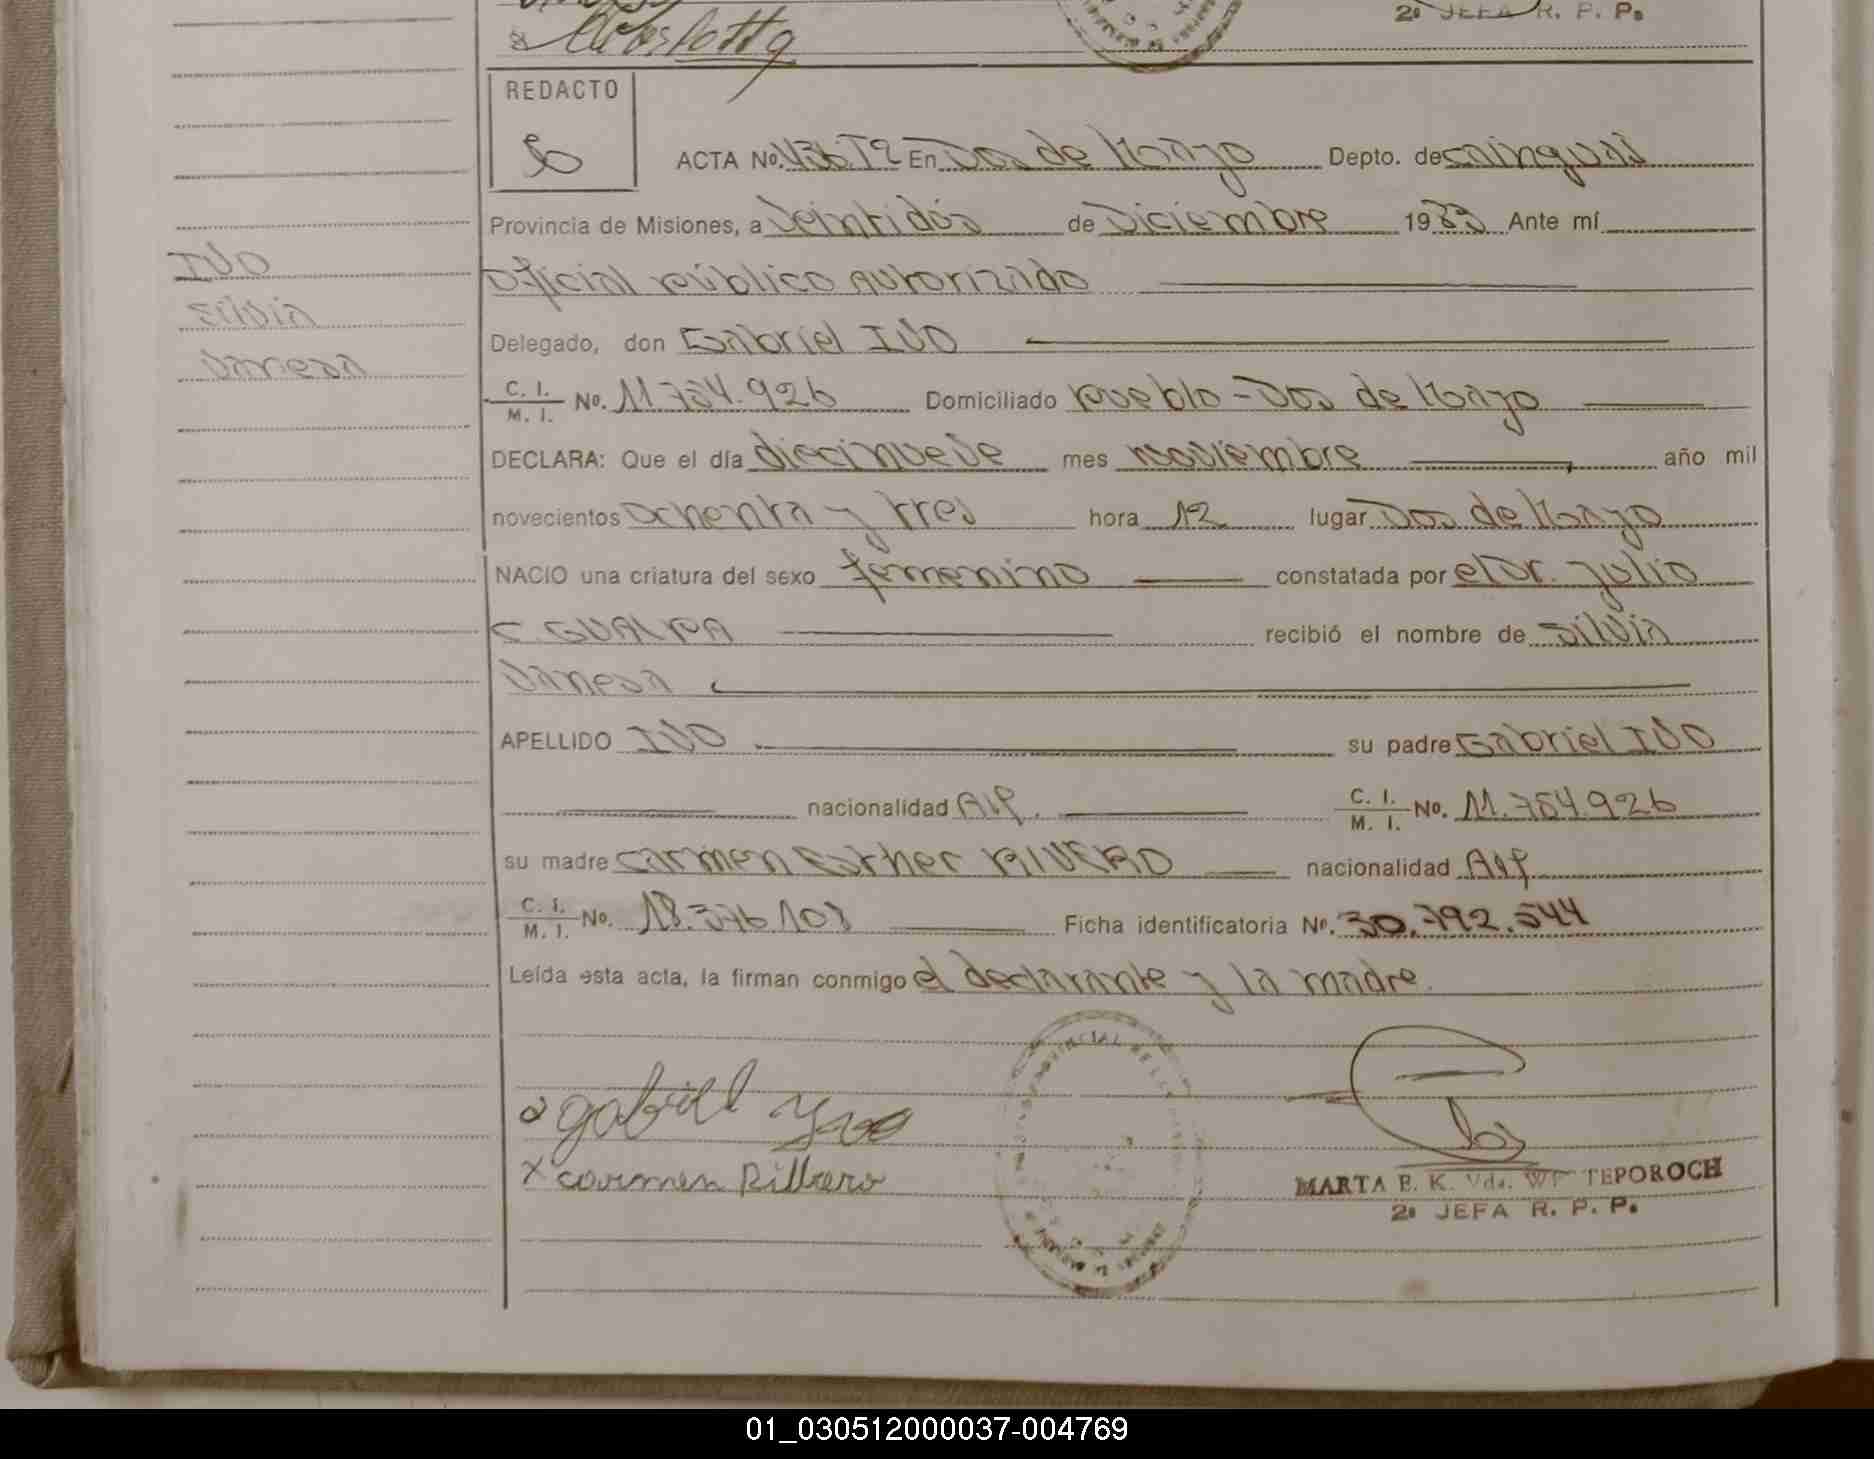 2º JEFA R. P. P.
REDACTO
ACTA No. 436 T2 En Dos de Mayo Depto. de Cainguás
Provincia de Misiones, a Veintidós de Diciembre 1983 Ante mí
Oficial Público Autorizado
IVO
Silvia
Vanesa
Delegado, don Gabriel IVO
C. I. / M. I. No. 11.754.926 Domiciliado Pueblo - Dos de Mayo
DECLARA: Que el día diecinueve mes noviembre año mil
novecientos ochenta y tres hora 12 lugar Dos de Mayo
NACIO una criatura del sexo femenino constatada por el Dr. Julio
C. GUALPA recibió el nombre de Silvia
Vanesa
APELLIDO IVO su padre Gabriel IVO
nacionalidad Arg. C. I. / M. I. No. 11.754.926
su madre Carmen Esther RIVERO nacionalidad Arg
C. I. / M. I. No. 18.376.108 Ficha identificatoria No. 30.792.544
Leída esta acta, la firman conmigo el declarante y la madre.
gabriel Yvo
x carmen Rillvero
MARTA E. K. Vda. WI TEPOROCH
2º JEFA R. P. P.
01_030512000037-004769